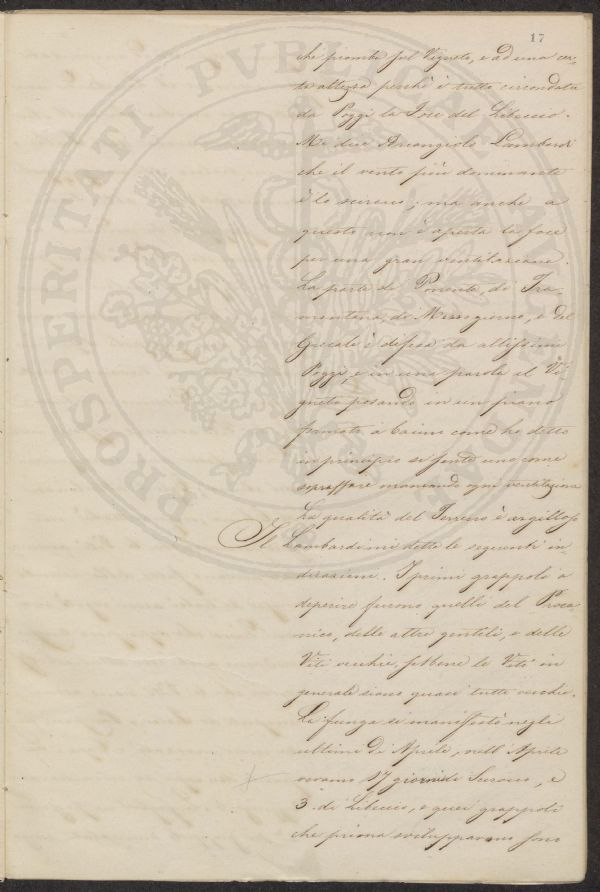 17
che piomba sul Vigneto, e ad una cer-
ta altezza perchè è tutto circondato
da Poggi la Foce del Libeccio.
Mi dice Arcangiolo Lambardi
che il vento più dominante
è lo scirocco; ma anche a
questo non è aperta la foce
per una gran ventilazione.
La parte di Ponente, di Tra-
montana, di Mezzogiorno, e del
Grecale è difesa da altissimi
Poggi, e in una parola il Vi-
gneto posando in un piano
formato a bacino come ho detto
in principio si sente uno come
sopraffare mancando ogni ventilazione
La qualità del Terreno è argilloso
Il Lambardi mi dette le seguenti in
dicazioni. I primi grappoli a
deperire furono quelli del Proca
nico, delle altre gentili, e delle
Viti vecchie, sebbene le Viti in
generale siano quasi tutte vecchie.
La funga si manifestò negli
ultimi di Aprile, nell'Aprile
17 giorni di Scirocco, e
3 di Libeccio, e quei grappoli
che prima svilupparono
PROSPERITATI PVBLICAE AVGENDAE